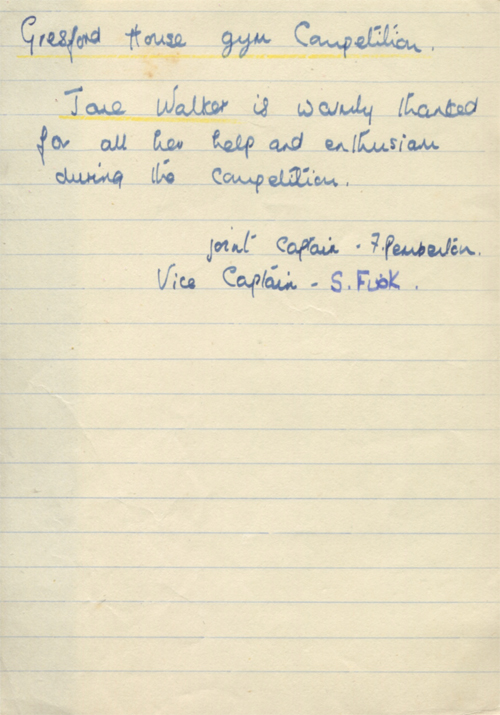 Gresford House gym Competition.
Jane Walker is warmly thanked
for all her help and enthusiasm
during the Competition.
joint Captain - F. Pemberton.
Vice Captain - S.